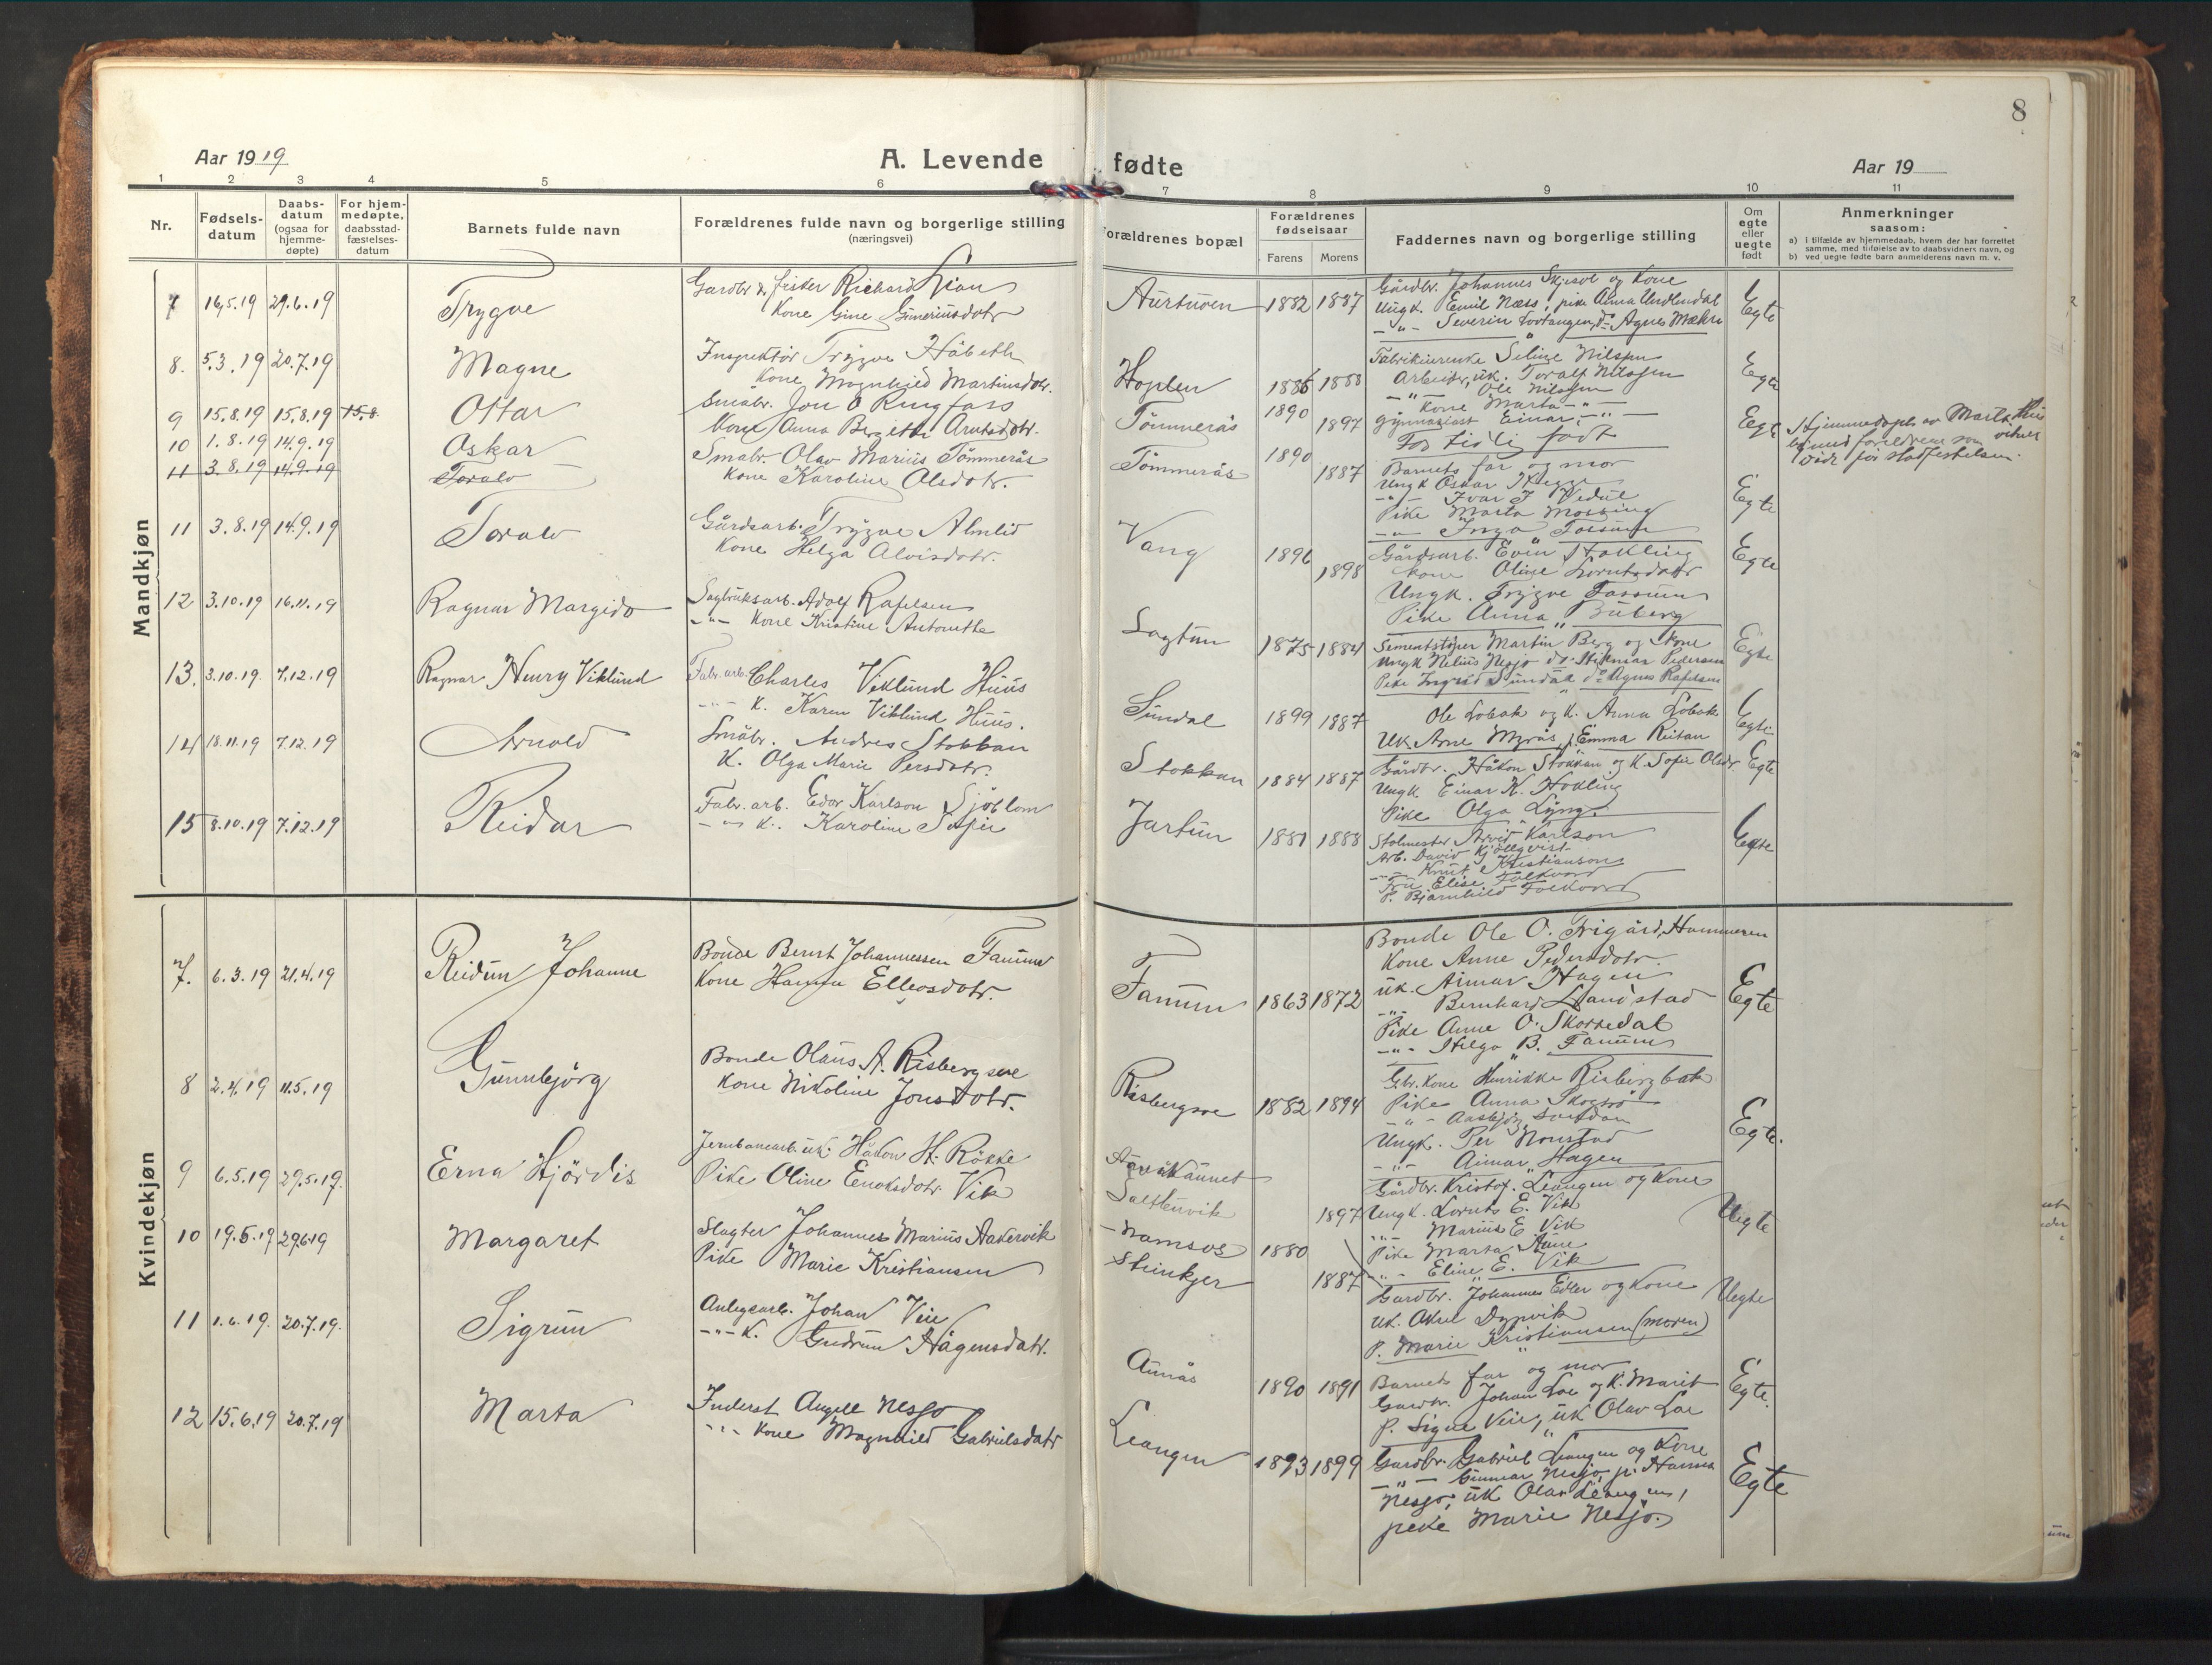 8
Aar 1919
A. Levende fødte
Aar 19
1 2 3 4 5 6 7 8 9 10 11
Nr.
Fødsels-
datum
Daabs-
datum
(ogsaa for
hjemme-
døpte)
For hjem-
medøpte,
daabsstad-
fæstelses-
datum
Barnets fulde navn
Forældrenes fulde navn og borgerlige stilling
(næringsvei)
orældrenes bopæl
Forældrenes
fødselsaar
Farens Morens
Faddernes navn og borgerlige stilling
Om
egte
eller
uegte
født
Anmerkninger
saasom:
a) i tilfælde av hjemmedaab, hvem der har forrettet
samme, med tilføielse av to daabsvidners navn, og
b) ved uegte fødte barn anmelderens navn m. v.
Mandkjøn
7 16.5.19 29.6.19 Trygve
Gardbr & fisker Richard Lian
Kone Gine Guneriusdotr
Aurtuven 1882 1887
Gårdbr. Johannes Skjesol og Kone
Ungk. Emil Næss, pike Alma
-"- Severin do Agnes
Egte
8. 5.3.19 20.7.19 Magne
Inspektør Trygve Håbeth
Kone Magnhild Martinsdotr.
Hoplen 1886 1888
Seline Nilssen
Arbeider, uk. Toralf Nilssen
-"- Ole Nilssen
Kone Marta -"-
gymnasiast Einar -"-
Egte
9 15.8.19 15.8.19 15.8 Ottar
Småbr. Jon O Ringsaas
Kone Anna Bergette Arntsdotr.
Tömmerås 1890 1897
For tidli født
Egte
Hjemmedøpt av Marta
før stadfestelsen.
10 1.8.19 14.9.19 Oskar
Småbr. Olav Marius Tömmerås
Kone Karoline Olsdotr.
Tömmerås 1890 1887
Barnets far og mor
Ungk Oskar
-"- Ivar J Vedul
Pike Marta Mossing
-"- Inga Fossum
Egte
11 3.8.19 14.9.19 Toralv
11 3.8.19 14.9.19 Toralv
Gårdsarb. Trygve Almlid
Kone Helga Alvisdotr.
Vang 1896 1898
Gårdsarb. Even Stokling
Kone Oline Lorntsdatr
Ungk. Trygve Fossum
Pike Anna Buberg
Egte
12 3.10.19 16.11.19 Ragnar Margido
Sagbruksarb. Adolf Rafelsen
-"- Kone Kristine Antonette
Sagtun 1875 1884
Sementstøper Martin Berg og Kone
Ungk Nelius Nesjø do Pedersen
Pike Ingrid Sundal do Agnes Rafelsen
Egte
13. 3.10.19. 7.12.19 Ragnar Henry Viklund
Fabr. arb. Charles Viklund Huus
-"- K. Karen Viklund Huus.
Sundal 1899 1887
Ole Lobak og K. Anna Lobak
Uk. Arne Myrås, p. Emma Reitan
Egte
14 18.11.19 7.12.19 Arnold
Småbr. Andres Stokkan
K. Olga Marie Persdotr.
Stokkan 1884 1887
Gårdbr. Håkon Stokkan og K. Sofie Olsdr.
Ungk Einar K. Hokling
Pike Olga Lyng.
Egte
15 8.10.19 7.12.19 Reidar
Fabr. arb. Edor Karlson Sjöblom
-"- K. Karoline Sofie
Jartun 1881 1888
Stolmester Arvid Karlson
Arb. David Kjellqvist
-"- Knut Kristianson
Fru Elise Folkvord
P. Bjarnhild Folkvord
Egte
Kvindekjøn
7. 6.3.19 21.4.19 Reidun Johanne
Bonde Bernt Johannessen Famme
Kone Hanna Ellevsdotr.
1863 1872
Bonde Ole O. Trigård, Hammeren
Kone Anne Pedersdotr.
uk. Aimar Hagen
-"- Bernhard Landstad
Pike Anne O. Skorredal
-"- Helga B.
Egte
8 2.4.19 11.5.19 Gunnbjörg
Bonde Olaus A. Risbergsve
Kone Nikoline Jonsdotr.
Risbergsve 1882 1894
Gbr. Kone Henrikke Risbergbak
Pike Anna
-"- Aasbjörg
Ungk. Per Nonstad
-"- Aimar Hagen
Egte.
9 6.5.19 29.5.19. Erna Hjördis
Jernbanearb. uk. Håkon H. Rökke
Pike Oline Enoksdotr. Vik
Saltenvik 1897
Gårdbr. Kristof. Leangen og Kone
Ungk. Lornts E. Vik
-"- Marius E. Vik
Pike Marta Aune
-"- Eline E. Vik
Uegte
10 19.5.19 29.6.19 Margaret
Slagter Johannes Marius Aakervik
Pike Marie Kristiansen
Namsos 1880
Steinkjer 1887
Gardbr. Johannes Edler og Kone
uk. Aksel Dypvik
P. Marie Kristiansen (moren)
Uegte
11 1.6.19. 20.7.19. Sigrun
Anlegsarb. Johan Veie
-"- K. Gudrun Hågensdatr.
Aunås 1890 1891
Barnets far og mor
Gardbr. Johan Loe og K. Marit
P. Signe Veie, uk Olav Loe
Egte.
12 15.6.19 20.7.19 Marta
Inderst Angell Nesjø
-"- Kone Magnhild Gabrielsdatr
Leangen 1893 1899
Gardbr. Gabriel Leangen og Kone
-"- Gunnar Nesjø, p. Hanna
Nesjø, uk Olav Leangen,
peke Marie Nesjø.
Egte